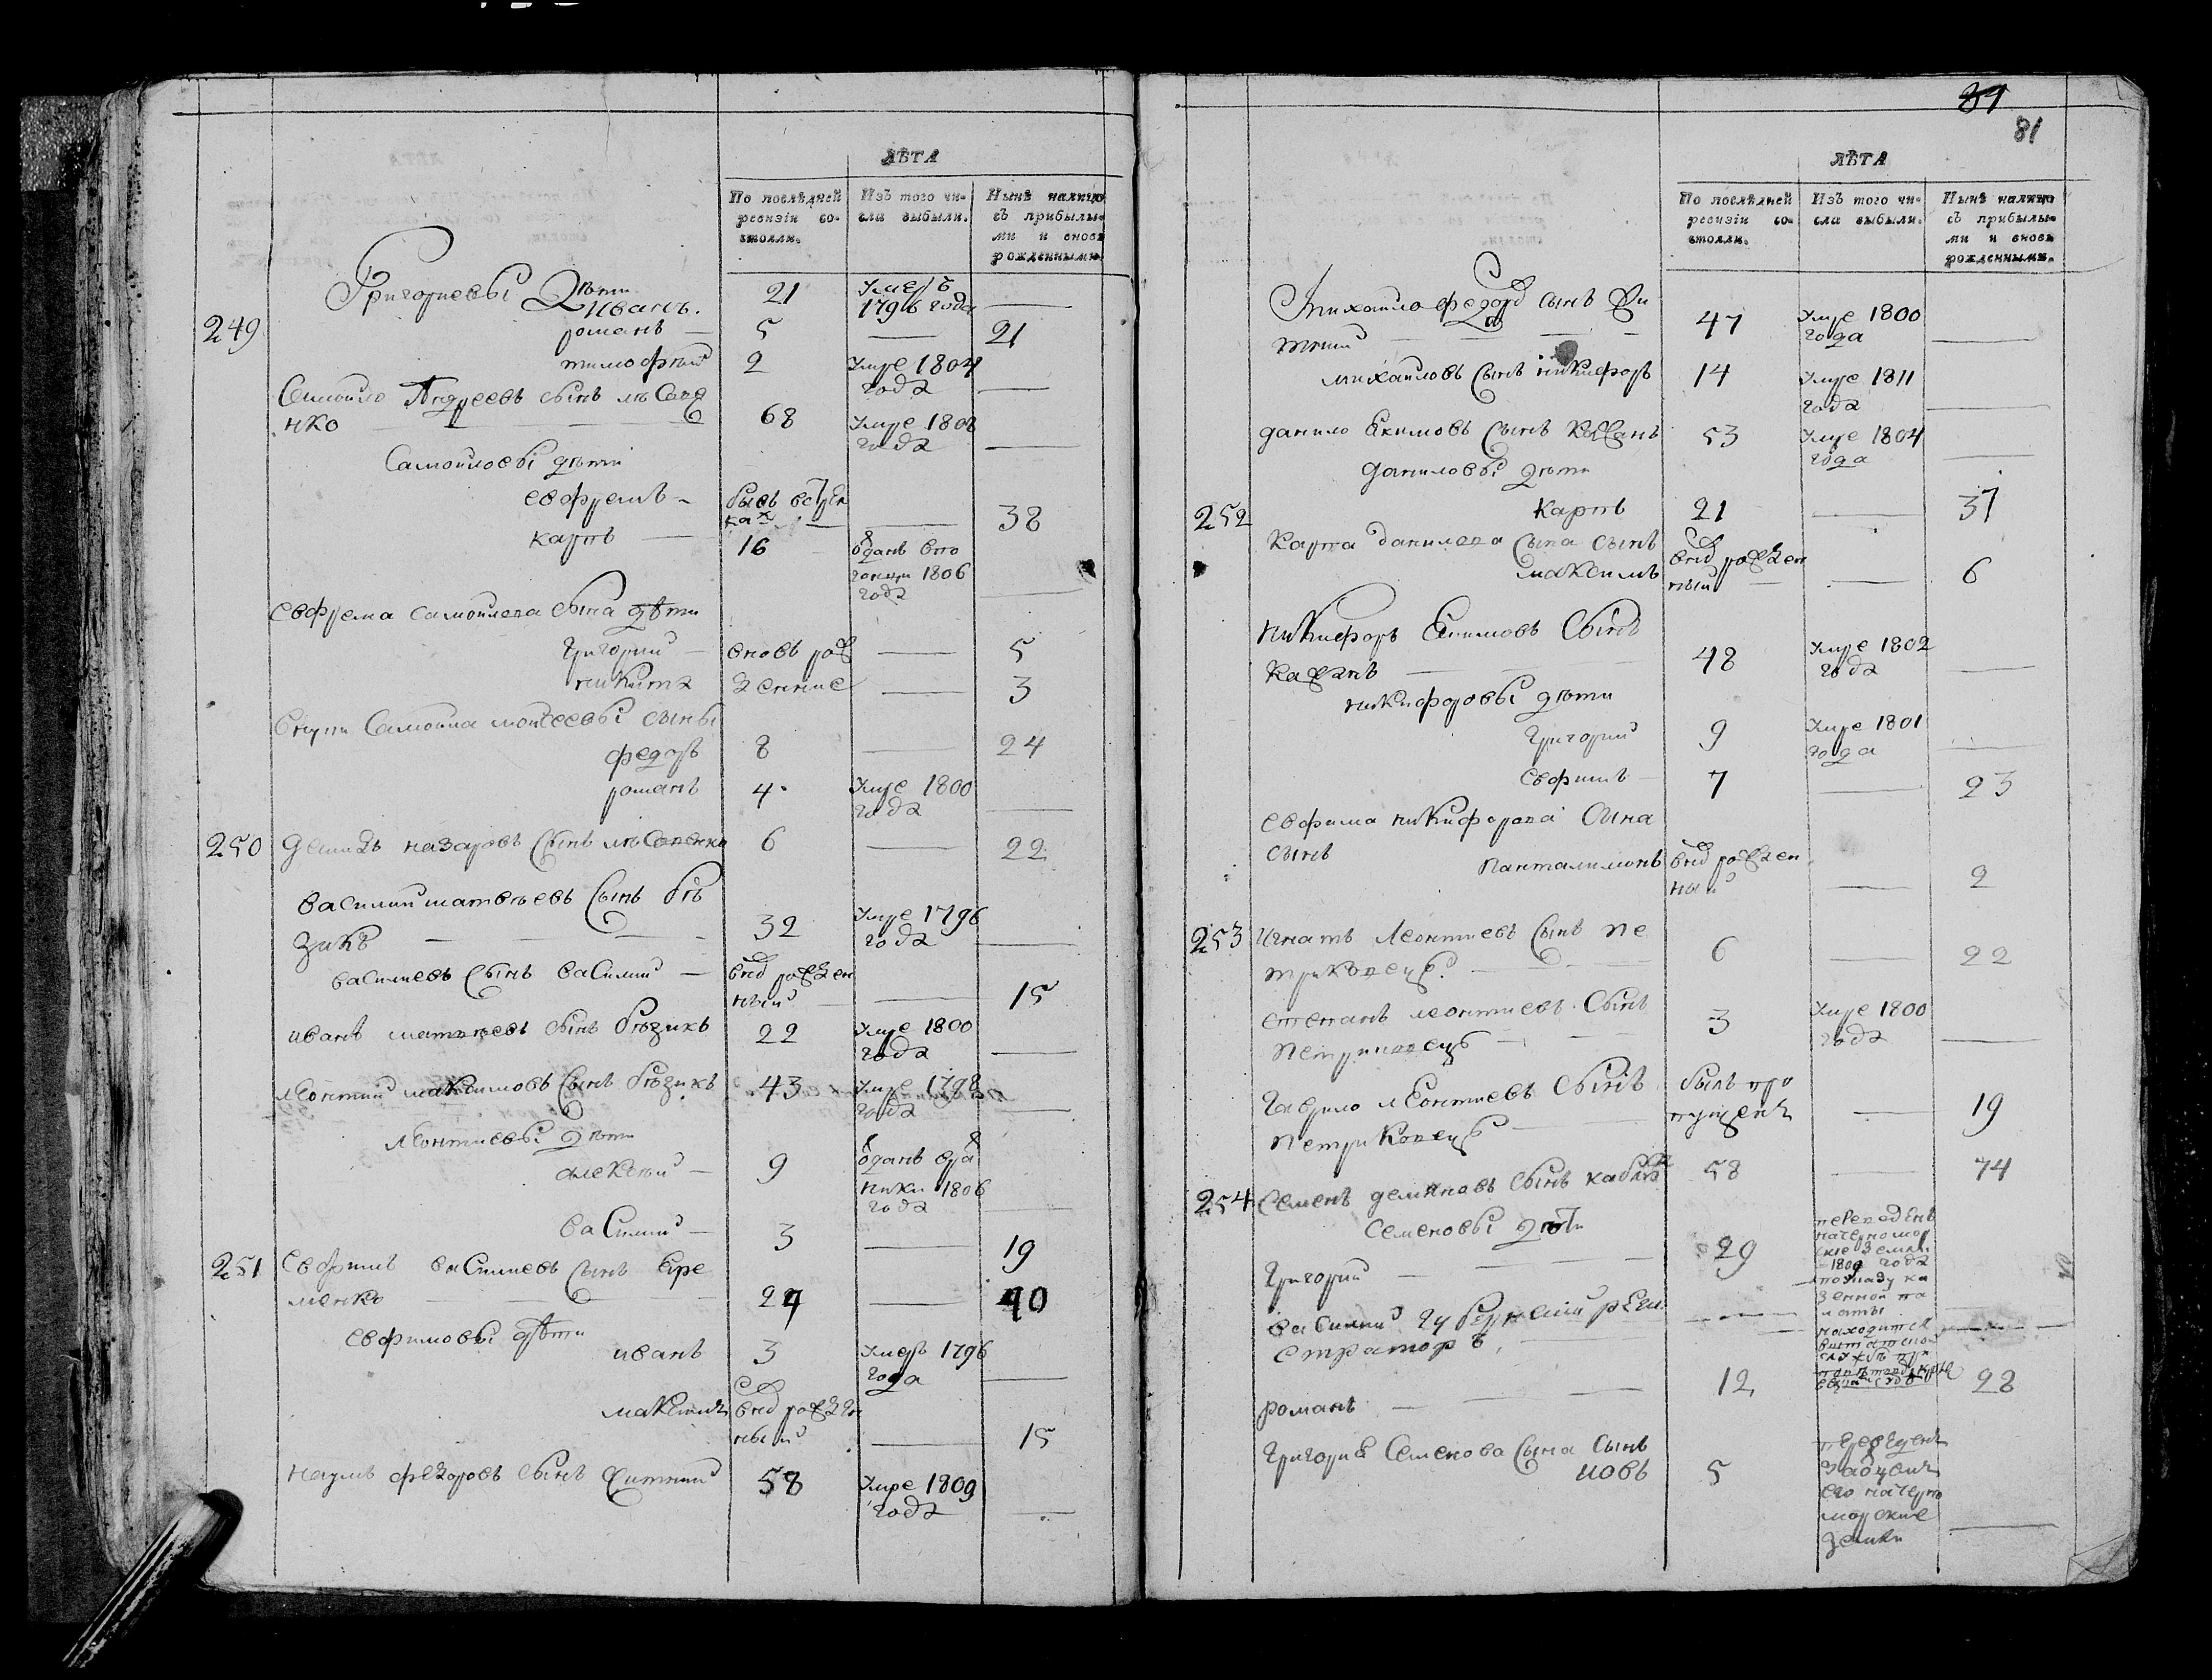 ЛѢТА
По послѣдней ревизіи состояли.
Изъ того числа выбыли.
Нынѣ налицо съ прибылыми и вновь рожденными.
Григориевы дѣти
Иванъ. 21 Умеръ 1796 года —
249 романъ — 5 — 21
тимофѣй 2 Умре 1804 года —
Самойло Андреевъ сынъ
нко — 68 Умре 1808 года —
Самойловы дѣти
евфремъ — 38
карпъ — 16 1806 года —
евфрема самойлова сына дѣти
Григорий — вновь рож — 5
никита денние — 3
внуки Самойла моисеевы сыны
федоръ 8 — 24
романъ 4 Умре 1800 года —
250 демидъ назаровъ сынъ 6 — 22
василий матвѣевъ сынъ бѣ
зикъ — 32 Умре 1796 года —
василиевъ сынъ василий — внов рожден
ный — 15
иванъ матвѣевъ сынъ бѣзикъ 22 Умре 1800 года —
леонтий максимовъ сынъ бѣзикъ 43 Умре 1798 года —
леонтиевы дѣти
алексѣй — 9 1806 года —
василий — 3 — 19
251 евфимъ василиевъ сынъ Ере
менко — 24 — 40
евфимовы дѣти
иванъ 3 Умеръ 1796 года —
максимъ внов рожден
ный — 15
наумъ федоровъ сынъ 58 Умре 1809 года —
81
81
ЛѢТА
По послѣдней ревизіи состояли.
Изъ того числа выбыли.
Нынѣ налицо съ прибылыми и вновь рожденными.
михайло федоровъ сынъ
тний — 47 Умре 1800 года —
михайловъ сынъ никифоръ 14 Умре 1811 года —
данило Екимовъ сынъ кажанъ 53 Умре 1804 года —
даниловы дѣти
252 карпъ 21 — 37
карпа данилова сына сынъ
максимъ внов рожден
ный — 6
никифоръ Екимовъ сынъ
кажанъ — 48 Умре 1802 года —
никифоровы дѣти
Григорий 9 Умре 1801 года —
евфимъ — 7 — 23
евфима никифорова сына
сынъ панталимонъ внов рожден
ный — 2
253 игнатъ леонтиевъ сынъ пе
триковецъ. — 6 — 22
степанъ леонтиевъ сынъ
петриковецъ — 3 Умре 1800 года —
Гаврило леонтиевъ сынъ былъ про
петриковецъ — пущенъ — 19
254 семенъ демяновъ сынъ 58 — 74
семеновы дѣти
Григорий — 29 переведенъ на черноморские земли 1809 года
василий губернский реги
страторъ — находится —
романъ — 12 28
Григория Семенова сына сынъ
иовъ 5 переведенъ
за отцемъ
его на черно
морские
земли —